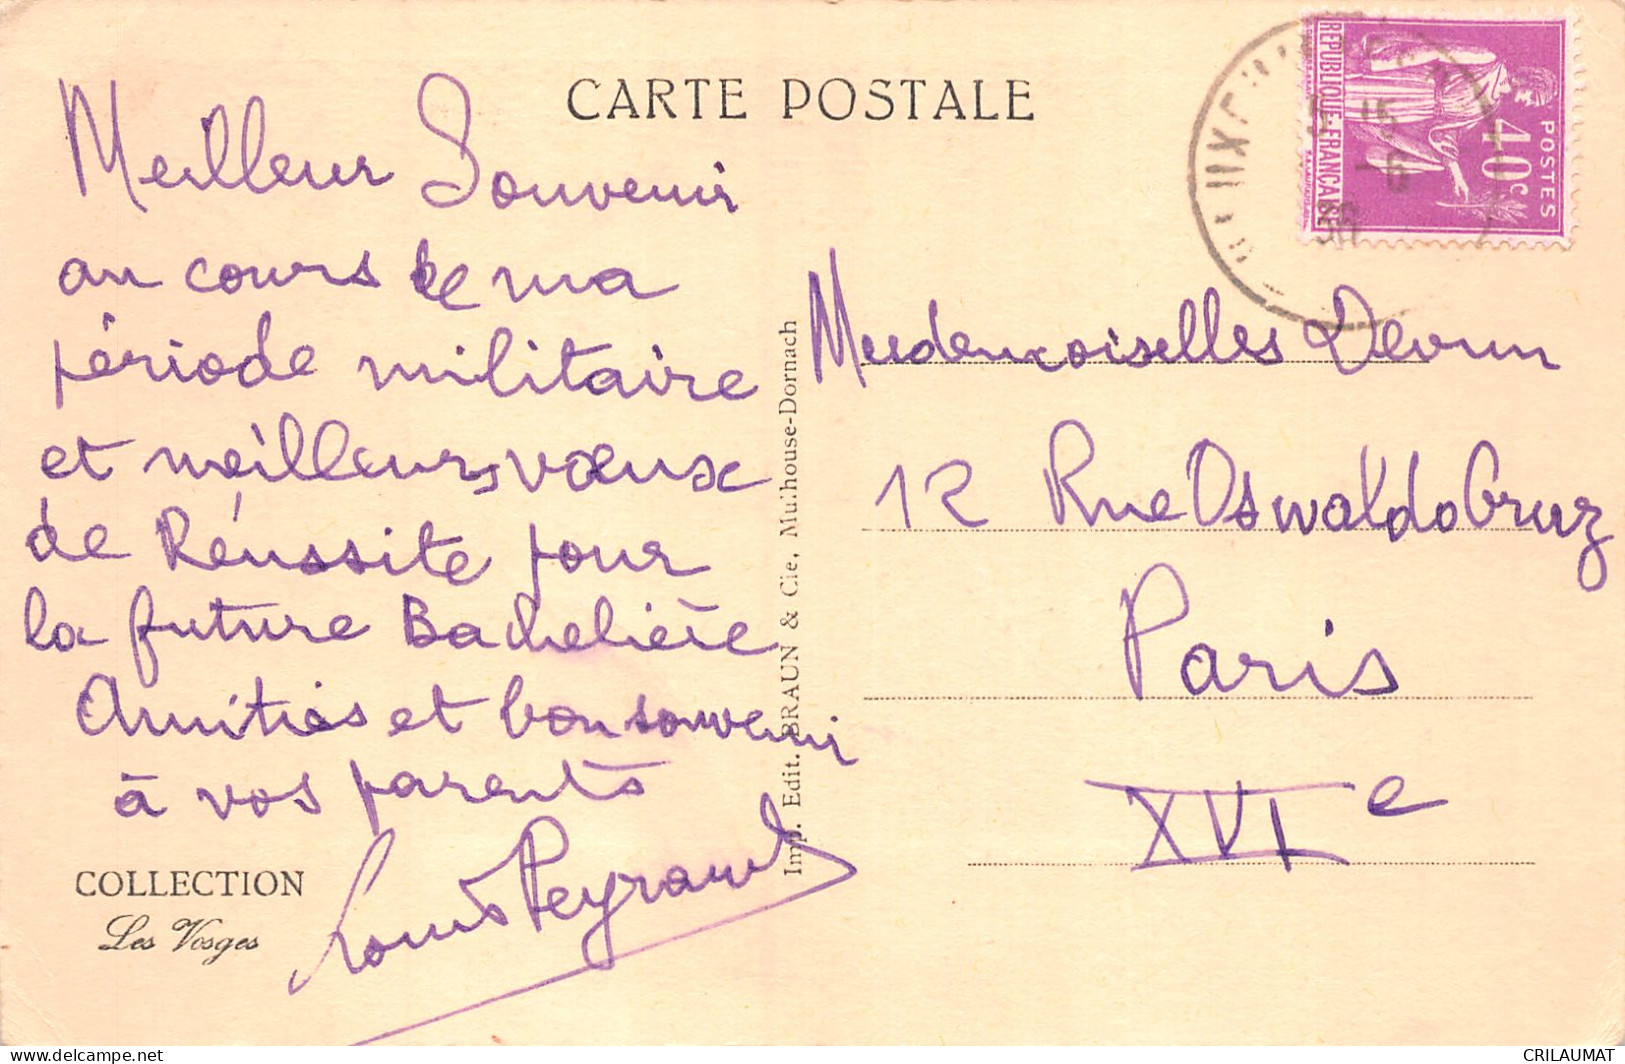 CARTE POSTALE
Meilleur Souvenir
au cours de ma
période militaire
et meilleurs vœux
de Réussite pour
la future Bachelière
Amitiés et bon souvenir
à vos parents
Louis
COLLECTION
Les Vosges
Imp. Edit. BRAUN & Cie, Mulhouse-Dornach
REPUBLIQUE-FRANÇAISE
POSTES
40c
15
-6
36
Mesdemoiselles
12 Rue Oswaldo Cruz
Paris
XVIe
www.delcampe.net
CRILAUMAT